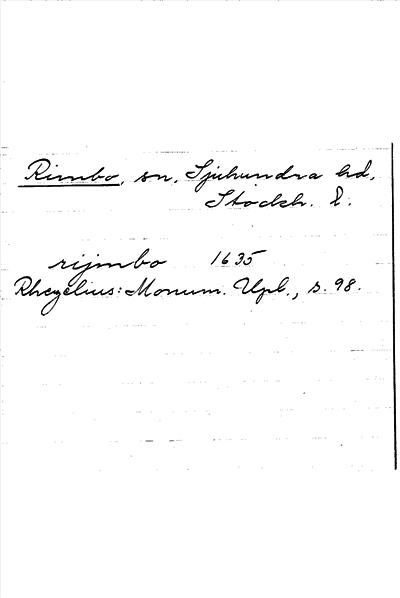 Rimbo, sn, Sjuhundra hd,
Stockh. l.
rijmbo 1635
Rhezelius: Monum. Upl., s. 98.